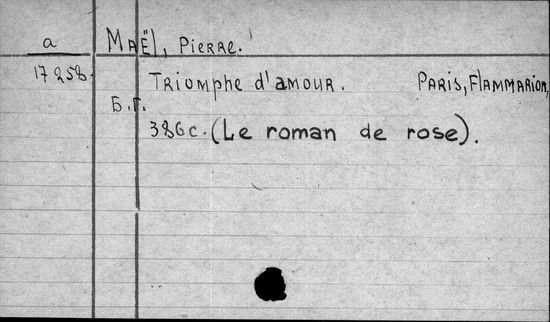 a
MAËL, PIERRE.
17258.
TRIOMPHE D'AMOUR. PARIS, FLAMMARION,
Б.Г.
386c. (Le roman de rose).